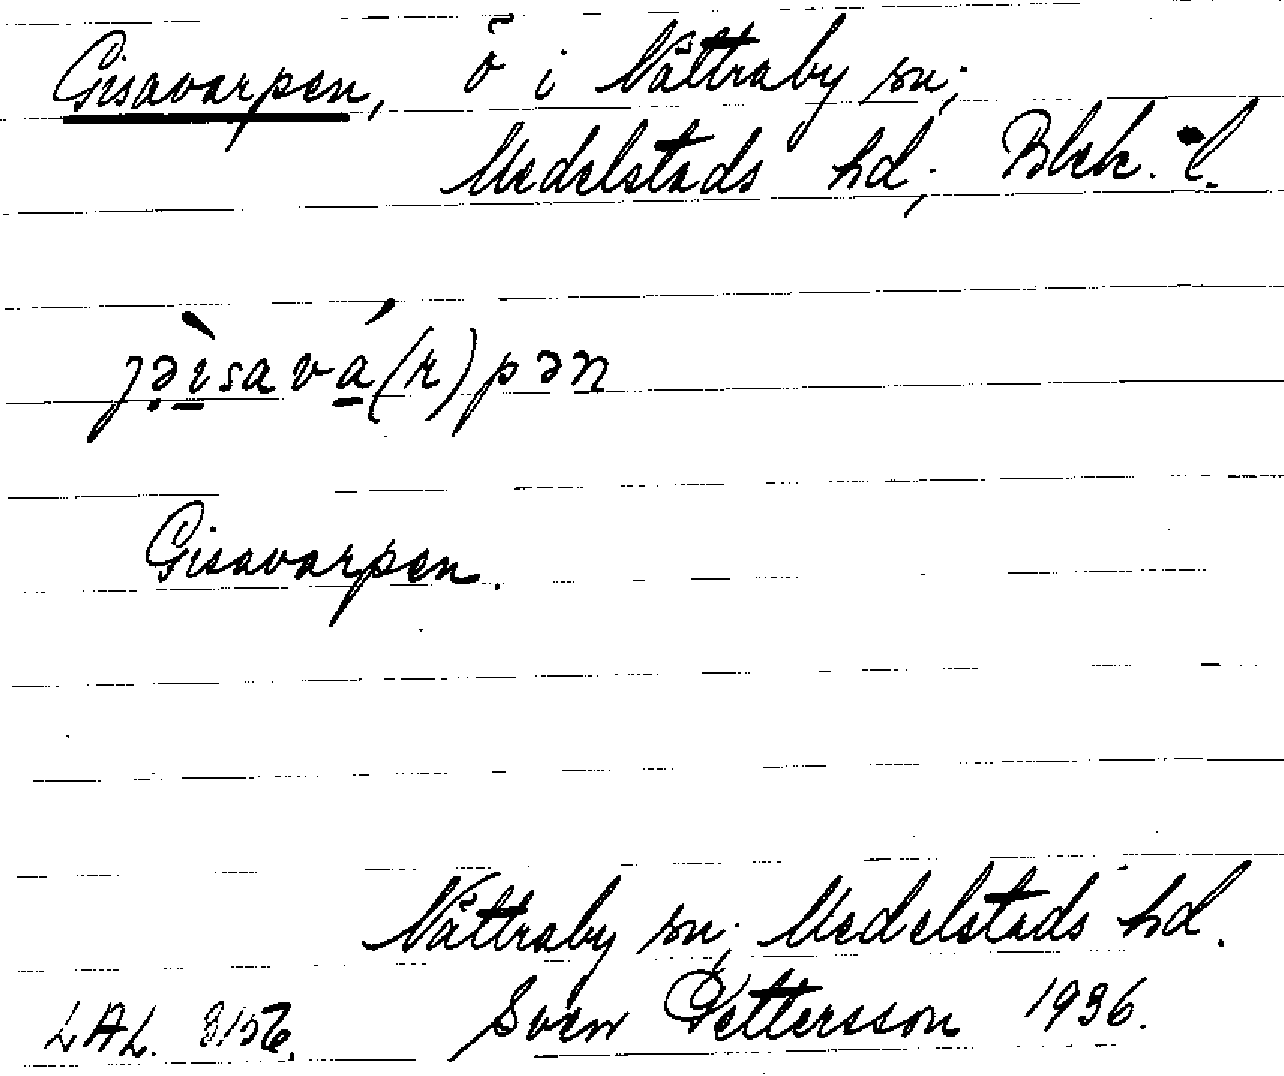 Gisavarpen, ö i Nättraby sn;
Medelstads hd; Blek. l.
jə̣ìsavá(r)pən
Gisavarpen.
Nättraby sn; Medelstads hd.
LAL. Sven Pettersson 1936.